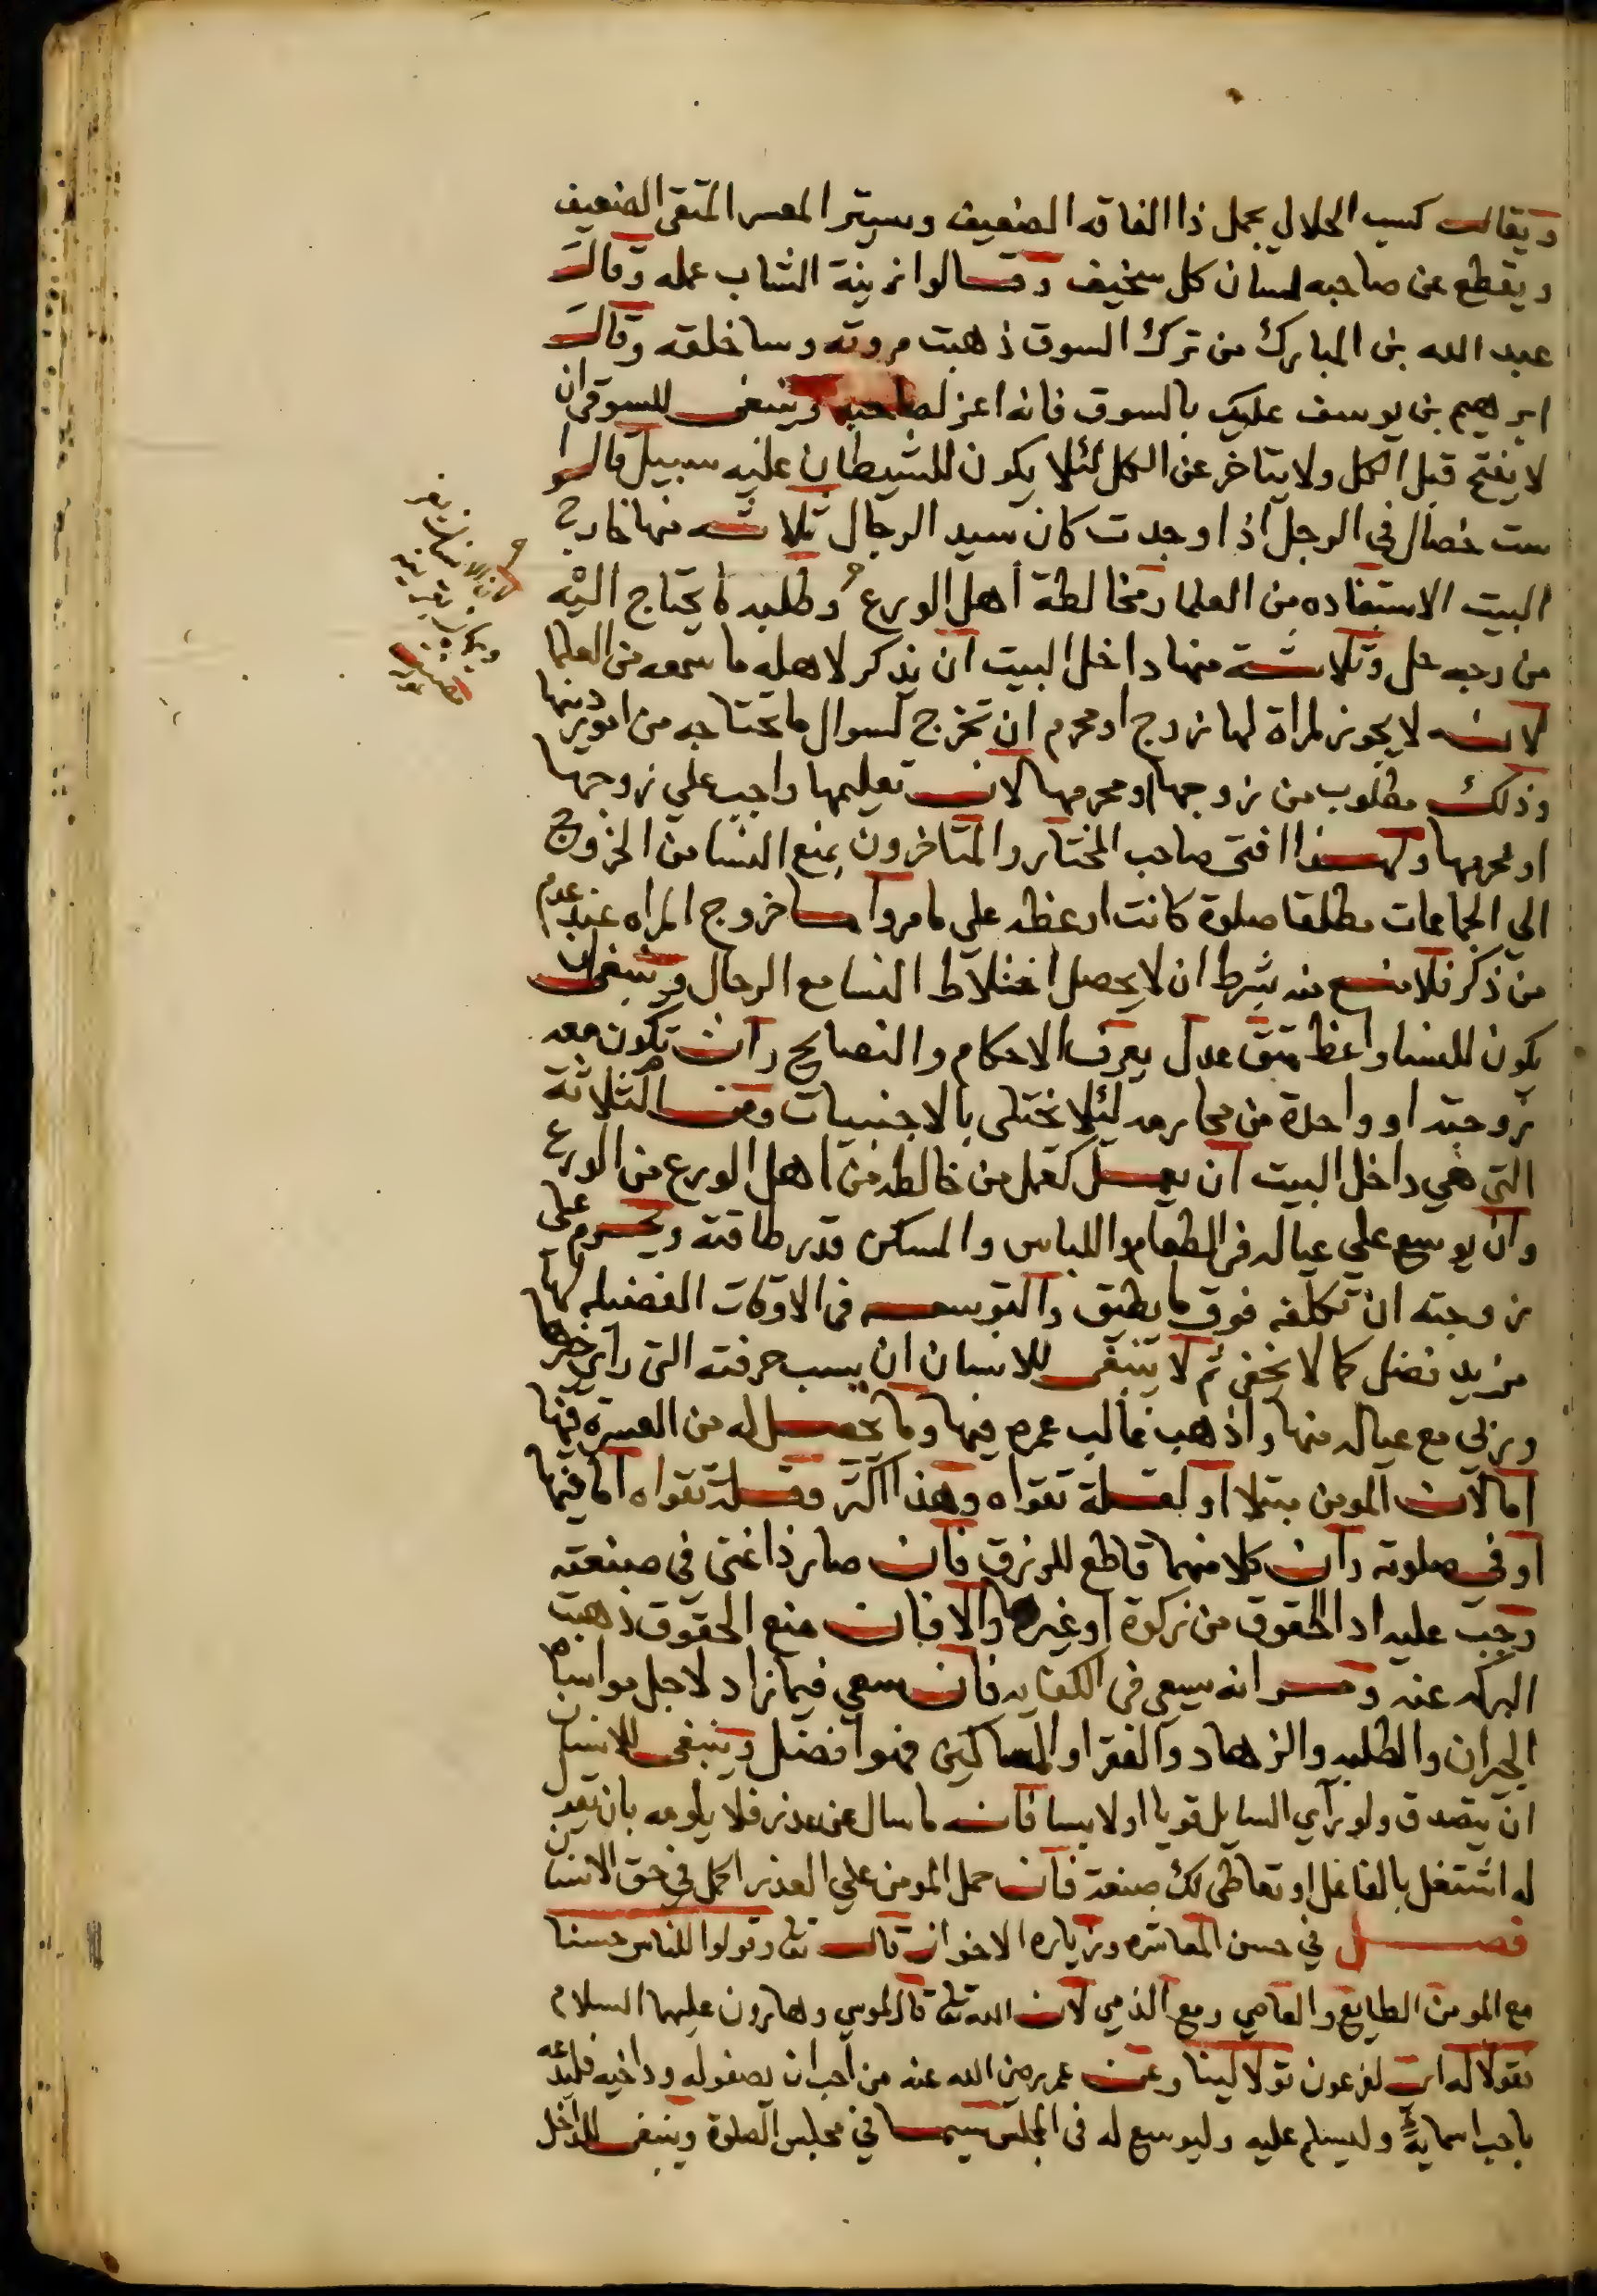 ويقال كسب الحلال يجمل ذا الفاقه الضعيف ويستر المعسر المتقى الضعيف
ويقطع عن صاحبه لسان كل سخيف وقالوا زينة الشاب عمله وقال
عبد الله بن المبارك من ترك السوق ذهبت مروته وسا خلقه وقال
ابرهيم بن يوسف عليك بالسوق فانه اعز لصاحبه وينبغى للسوقى ان
لا يفتح قبل الكل ولا يتاخر عن الكل لئلا يكون للشيطان عليه سبيل قالوا
ست خصال في الرجل اذا وجدت كان سيد الرجال ثلاثه منها خارج
البيت الاستفاده من العلما ومخالطة اهل الورع وطلبه ما يحتاج اليه
من وجه حل وثلاثة منها داخل البيت ان يذكر لاهله ما سمعه من العلما
لانه لا يجوز لمراة لها زوج او محرم ان تخرج لسوال ما تحتاجه من امور دينها
وذلك مطلوب من زوجها او محرمها لان تعليمها واجب علي زوجها
او محرمها ولهذا افتى صاحب المختار والمتاخرون بمنع النسا من الخروج
الي الجماعات مطلقا صلوة كانت او عظه علي ما مر واما خروج المراه عند عدم
من ذكر فلا منع منه بشرط ان لا يحصل اختلاط النسا مع الرجال وينبغى ان
يكون للنسا واعظ متق عدل يعرف الاحكام والنصايح وان تكون معه
زوجته او واحدة من محارمه لئلا يختلى بالاجنبيات ومن الثلاثة
التى هي داخل البيت ان يعمل كعمل من خالطه من اهل الورع من الورع
وان يوسع علي عياله فى الطعام واللباس والمسكن قدر طاقته ويحرم على
زوجته ان تكلفه فوق ما يطيق والتوسعه فى الاوقات الفضيله لها
مزيد فضل كما لا يخفى ثم لا ينبغى للانسان ان يسب حرفته التى راي خيرها
وربي مع عياله منها واذهب غالب عمره فيها وما يحصل له من العسرة فيها
اما لان المومن مبتلا او لقلة تقواه وهذا اكثر وقلة تقواه اما فيها
او فى صلوته وان كلا منهما قاطع للرزق فان صار ذا غنى في صنعته
وجب عليه ادا الحقوق من زكوة او غيرها والا فان منع الحقوق ذهبت
البركه عنه ومر انه سيعى فى الكفايه فان سعي فيما زاد لاجل مواساة
الجيران والطلبه والزهاد والفقرا والمساكين فهو افضل وينبغى للانسان
ان يتصدق ولو راي السايل قويا او لابسا فانه ما سال عن عذر فلا يلومه بان يقول
له اشتغل بالفاعل او تعاطى لك صنعة فان حمل المومن علي العذر اكمل في حق الانسان
فصل في حسن المعاشره وزياره الاخوان قال تعالى وقولوا للناس حسنا
مع المومن الطايع والعاصي ومع الذمي لان الله تعالى قال لموسي وهارون عليهما السلام
فقولا له اى لفرعون قولا لينا وعن عمر رضى الله عنه من احب ان يصفو له ود اخيه فليدعه
باحب اسمايه وليسلم عليه وليوسع له فى المجلس سيما في مجلس الصلوة وينبغى للداخل